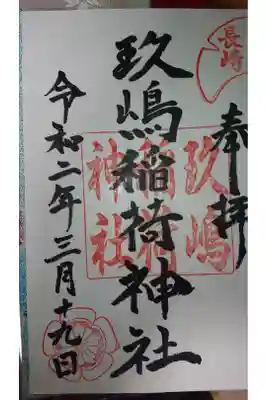 長崎
奉拝
玖嶋稲荷神社
玖嶋
稲荷
神社
令和二年三月十九日